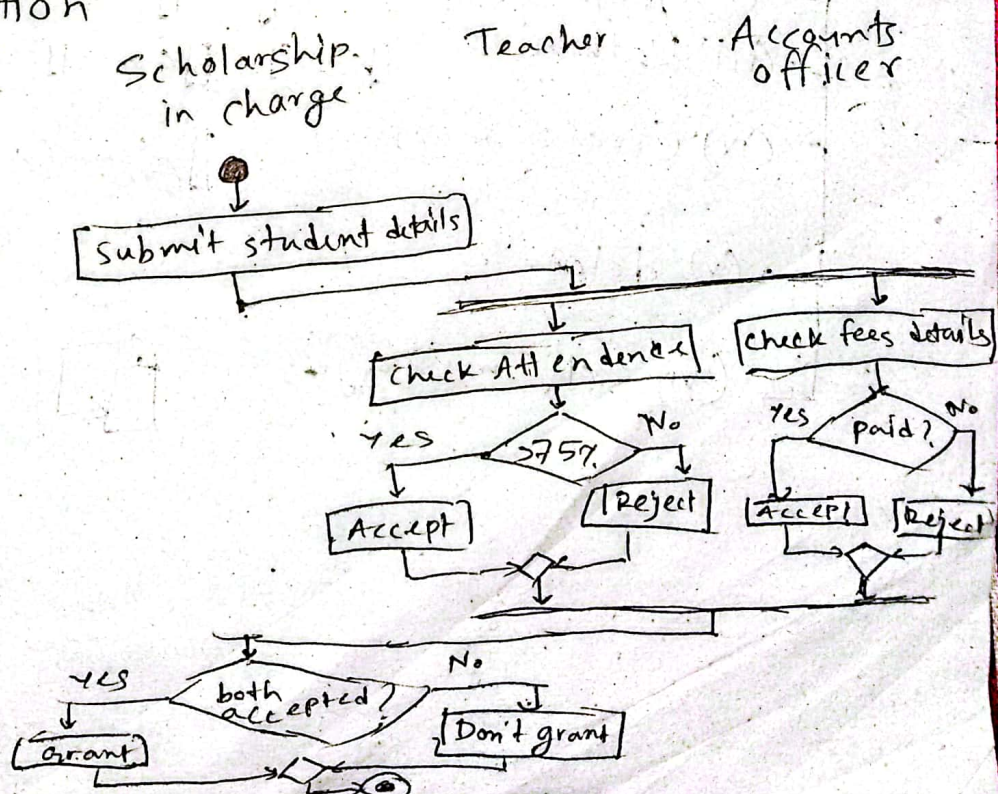 tion
Scholarship
in charge
Teacher
Accounts
officer
Submit student details
Check Attendence
Check fees details
Yes
>75%
No
Yes
paid?
No
Accept
Reject
Accept
Reject
Yes
both
accepted?
No
Grant
Don't grant